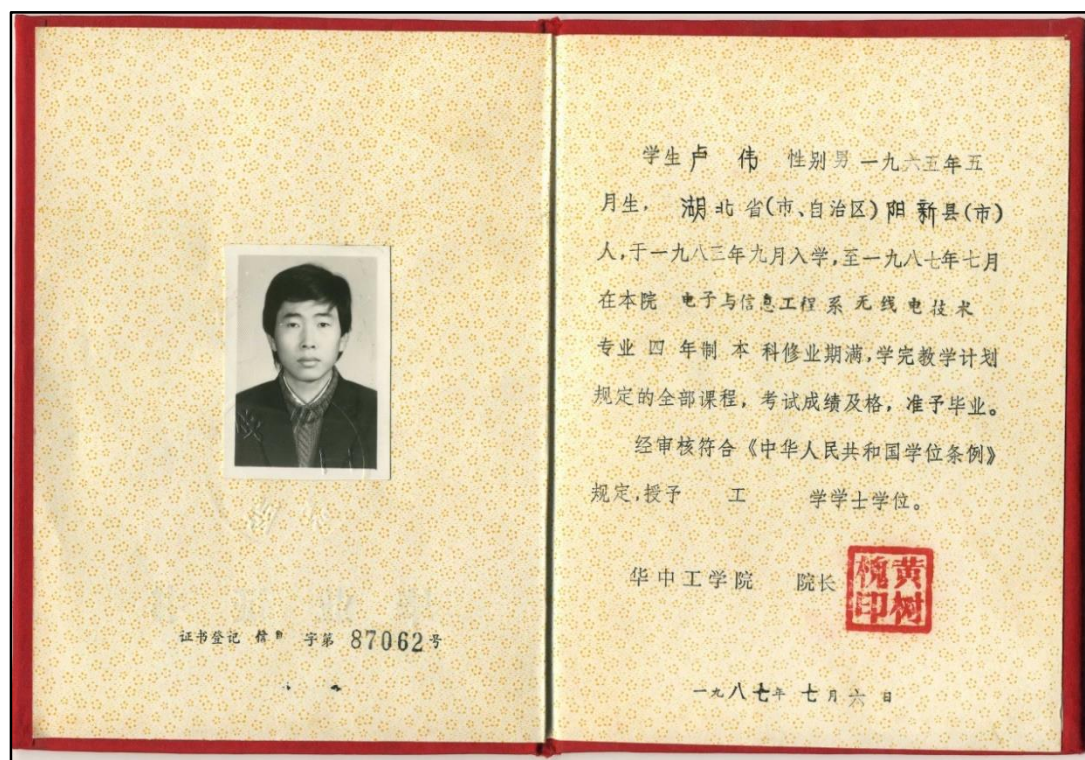 证书登记 信自 字第 87062号
学生 卢 伟 性别 男 一九六五年五
月生, 湖北省(市、自治区)阳新县(市)
人,于一九八三年九月入学,至一九八七年七月
在本院 电子与信息工程系无线电技术
专业 四 年制 本 科修业期满,学完教学计划
规定的全部课程,考试成绩及格,准予毕业。
经审核符合《中华人民共和国学位条例》
规定,授予 工 学学士学位。
华中工学院 院长
黄树槐印
一九八七年七月六日